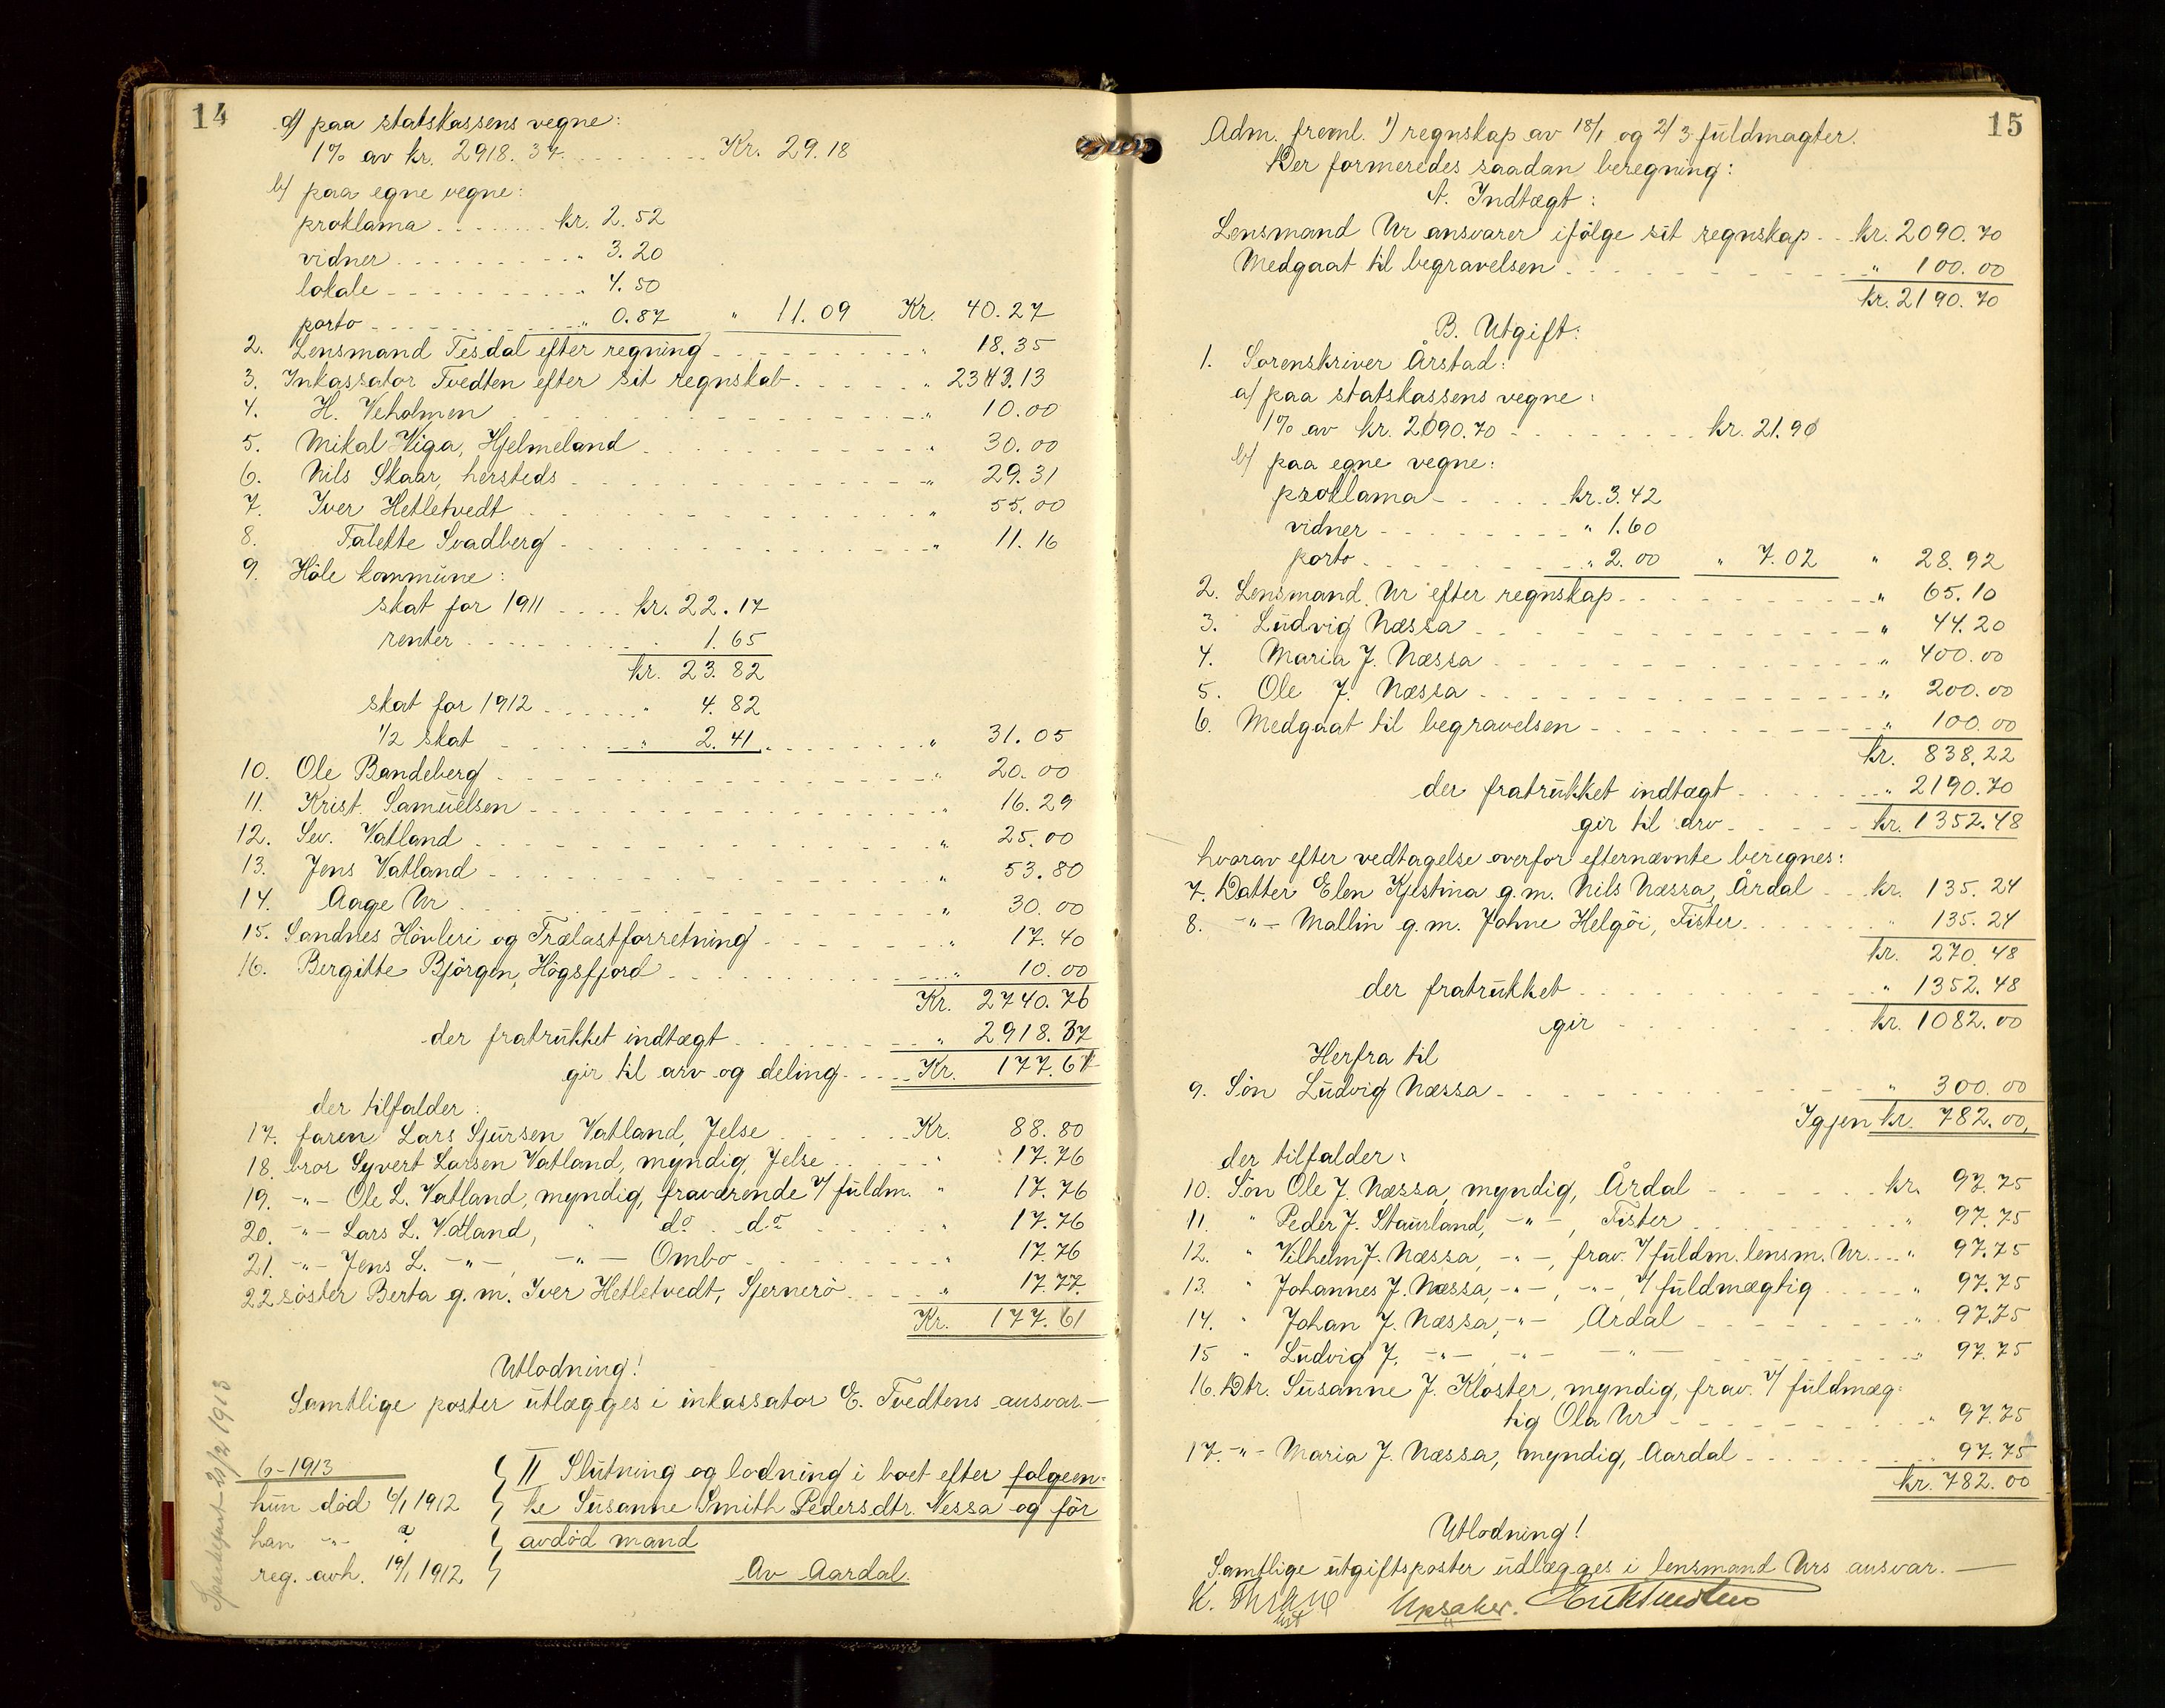 14
a) paa statskassens vegne:
1% av kr. 2918.37 . . . . . . . Kr. 29.18
b) paa egne vegne:
proklama . . . . . . . kr. 2.52
vidner . . . . . . . . . . " 3.20
lokale . . . . . . . . . . " 4.50
porto . . . . . . . . . . " 0.87 " 11.09 Kr. 40.27
2. Lensmand Tesdal efter regning . . . . . . . . . " 18.35
3. Inkassator Tvedten efter sit regnskab . . . . . . " 2343.13
4. H. Veholmen . . . . . . . . . . " 10.00
5. Mikal Viga, Hjelmeland . . . . . . . . . . " 30.00
6. Nils Skaar, hersteds . . . . . . . . . . " 29.31
7. Iver Hetletvedt . . . . . . . . . . " 55.00
8. Talette Svadberg . . . . . . . . . . " 11.16
9. Höle kommune:
skat for 1911 . . . . kr. 22.17
renter . . . . . . . . . 1.65
kr. 23.82
skat for 1912 . . . . . . " 4.82
1/2 skat . . . . . . " 2.41 . . . . . . . . " 31.05
10. Ole Bandeberg . . . . . . . . . . " 20.00
11. Krist. Samuelsen . . . . . . . . . . " 16.29
12. Sev. Vatland . . . . . . . . . . " 25.00
13. Jens Vatland . . . . . . . . . . " 53.80
14. Aage Ur . . . . . . . . . . " 30.00
15. Sandnes Hövleri og Trælastforretning . . . . . . . " 17.40
16. Bergitte Bjørgen, Högsfjord . . . . . . . . . . " 10.00
Kr. 2740.76
der fratrukket indtægt . . . . . . . . " 2918.37
gir til arv og deling . . . . . Kr. 177.61
der tilfalder:
17. faren Lars Sjursen Vatland, Jelse . . . . . . Kr. 88.80
18. bror Syvert Larsen Vatland, myndig, Jelse . . . . . " 17.76
19. -"- Ole L. Vatland, myndig, fraværende v/ fuldm. " 17.76
20. -"- Lars L. Vatland, " do . do . . . . . . " 17.76
21. -"- Jens L. -"-, -"- Ombo . . . . . . . . . " 17.76
22 søster Berta g.m. Iver Hetletvedt, Sjernerö . . . . " 17.77.
Kr. 177.61
Utlodning!
Samtlige poster utlægges i inkassator E. Tvedtens ansvar. —
21/2 1913
6-1913
hun död 6/1 1912
han -"- ?
reg. avh. 19/1 1912
II Slutning og lodning i boet efter folgeen-
ke Susanne Smith Pedersdtr. Nessa og för
avdöd mand
Av Aardal.
15
Adm. freml. 1) regnskap av 18/1 og 2/ 3 fuldmagter.
Der formeredes saadan beregning:
A. Indtægt:
Lensmand Ur ansvarer ifölge sit regnskap . . . kr. 2090.70
Medgaat til begravelsen . . . . . . . . . . " 100.00
kr. 2190.70
B. Utgift:
1. Sorenskriver Årstad:
a) paa statskassens vegne:
1% av kr. 2090.70 . . . . . . . . . kr. 21.90
b) paa egne vegne:
proklama . . . . . kr. 3.42
vidner . . . . . . . . . " 1.60
porto . . . . . . . . . " 2.00 " 7.02 " 28.92
2. Lensmand Ur efter regnskap . . . . . . . . . . " 65.10
3. Ludvig Næssa . . . . . . . . . . " 44.20
4. Maria J. Næssa . . . . . . . . . . " 400.00
5. Ole J. Næssa . . . . . . . . . . " 200.00
6. Medgaat til begravelsen . . . . . . . . . . " 100.00
kr. 838.22
der fratrukket indtægt . . . . . . . " 2190.70
gir til arv . . . . . kr. 1352.48
hvorav efter vedtagelse overfor efternævnte beregnes:
7. Datter Elen Kjistina g.m. Nils Næssa, Årdal . . kr. 135.24
8. -"- Mallin g.m. Johne Helgöi, Fister . . . . . . . " 135.24
kr. 270.48
der fratrukket . . . . . . . . . . " 1352.48
gir . . . . . . . . kr. 1082.00
Herfra til
9. Sön Ludvig Næssa . . . . . . . . . . " 300.00
Igjen kr. 782.00,
der tilfalder:
10. Sön Ole J. Næssa, myndig, Årdal . . . . . . kr. 97.75
11. " Peder J. Staurland, -"-, Fister . . . . . . . . . " 97.75
12. " Vilhelm J. Næssa, -"-, frav. v/ fuldm. lensm. Ur . . . " 97.75
13. " Johannes J. Næssa, -"-, -"-, v/ fuldmægtig . . . . . " 97.75
14. " Johan J. Næssa, -"- Årdal . . . . . . . . . " 97.75
15 " Ludvig J. -"-, -"- -"- . . . . . . . . . " 97.75
16. Dtr. Susanne J. Kloster, myndig, frav. v/ fuldmæg-
tig Ola Ur . . . . . . . . . . " 97.75
17. -"- Maria J. Næssa, myndig, Aardal . . . . . . . . 97.75
kr. 782.00
Utlodning!
Samtlige utgiftsposter udlægges i lensmand Urs ansvar. —
K.